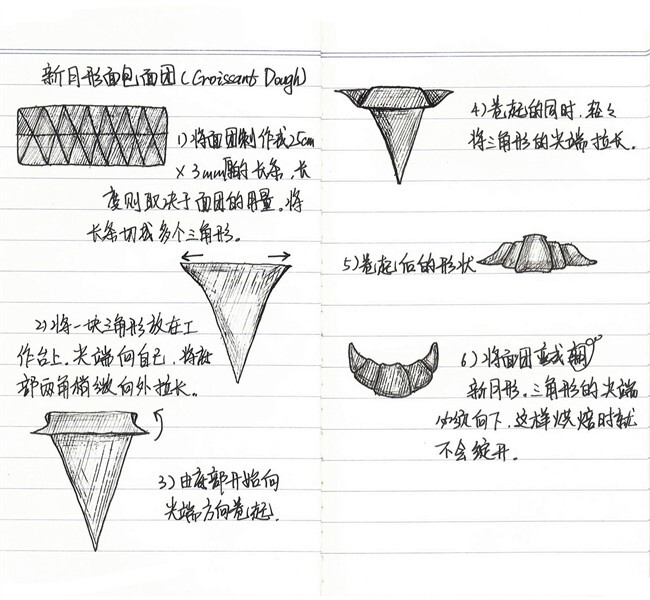 新月形面包面团(Croissant Dough)
1)将面团制作成25cm
×3mm厚的长条,长
度则取决于面团的用量。将
长条切成多个三角形。
2)将一块三角形放在工
作台上,尖端向自己,将底
部两角稍微向外拉长。
3)由底部开始向
尖端方向卷起.
4)卷起的同时,轻轻
将三角形的尖端拉长。
5)卷起后的形状
6)将面团弯成
新月形。三角形的尖端
必须向下,这样烘焙时就
不会绽开。